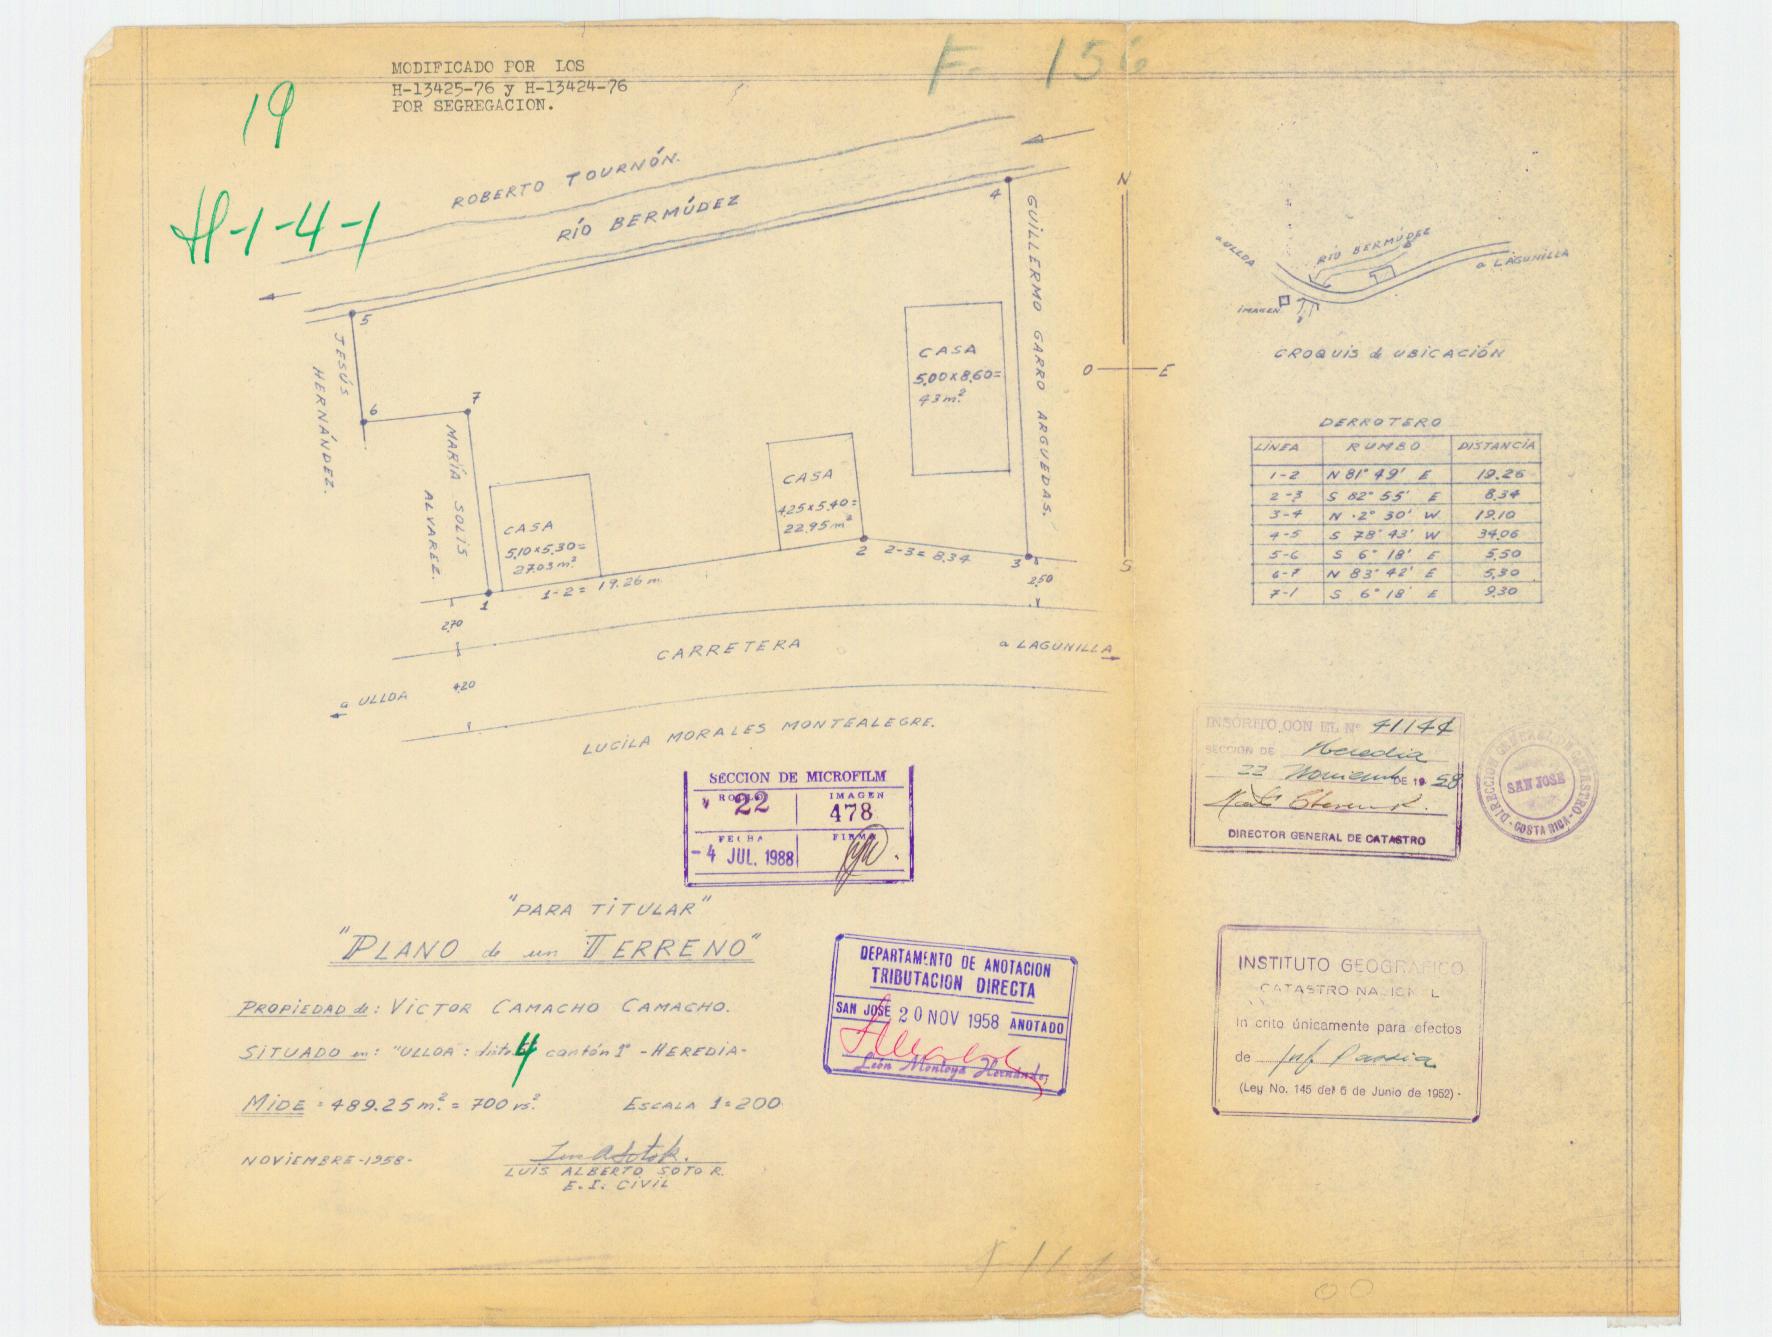 MODIFICADO POR LOS
H-13425-76 y H-13424-76
POR SEGREGACION.
19
H-1-4-1
F- 156
ROBERTO TOURNÓN.
RÍO BERMÚDEZ
4
5
JESÚS HERNÁNDEZ.
6
7
MARÍA SOLIS ALVAREZ.
GUILLERMO GARRO ARGUEDAS.
CASA
5,00 x 8,60=
43 m²
CASA
4,25 x 5,40=
22.95 m²
CASA
5,10 x 5,30=
27.03 m²
1
1-2 = 19.26 m
2
2-3 = 8.34
3
2,50
2,70
CARRETERA
a LAGUNILLA
a ULLOA
4,20
LUCILA MORALES MONTEALEGRE.
N
O
E
S
a ULLOA
RÍO BERMÚDEZ
a LAGUNILLA
IMAGEN
CROQUIS de UBICACIÓN
DERROTERO
LÍNEA RUMBO DISTANCIA
1-2 N 81° 49' E 19.26
2-3 S 82° 55' E 8.34
3-4 N 2° 30' W 19.10
4-5 S 78° 43' W 34.06
5-6 S 6° 18' E 5.50
6-7 N 83° 42' E 5.30
7-1 S 6° 18' E 9.30
INSCRITO CON EL Nº 41144
SECCION DE Heredia
22 Noviemb DE 1958
DIRECTOR GENERAL DE CATASTRO
DIRECCION GENERAL DE CATASTRO
SAN JOSE
- COSTA RICA -
SECCION DE MICROFILM
ROLLO 22 IMAGEN 478
FECHA FIRMA
- 4 JUL. 1988
"PARA TITULAR"
"PLANO de un TERRENO"
PROPIEDAD de: VICTOR CAMACHO CAMACHO.
SITUADO en: "ULLOA": dist. 4 cantón 1° - HEREDIA -
MIDE = 489.25 m² = 700 vs² ESCALA 1=200
NOVIEMBRE-1958-
LUIS ALBERTO SOTO R.
E.I. CIVIL
DEPARTAMENTO DE ANOTACION
TRIBUTACION DIRECTA
SAN JOSE 20 NOV 1958 ANOTADO
León Montoya Hernández
INSTITUTO GEOGRAFICO
CATASTRO NACIONAL
In crito únicamente para efectos
de Inf. Posesoria
(Ley No. 145 del 6 de Junio de 1952) -